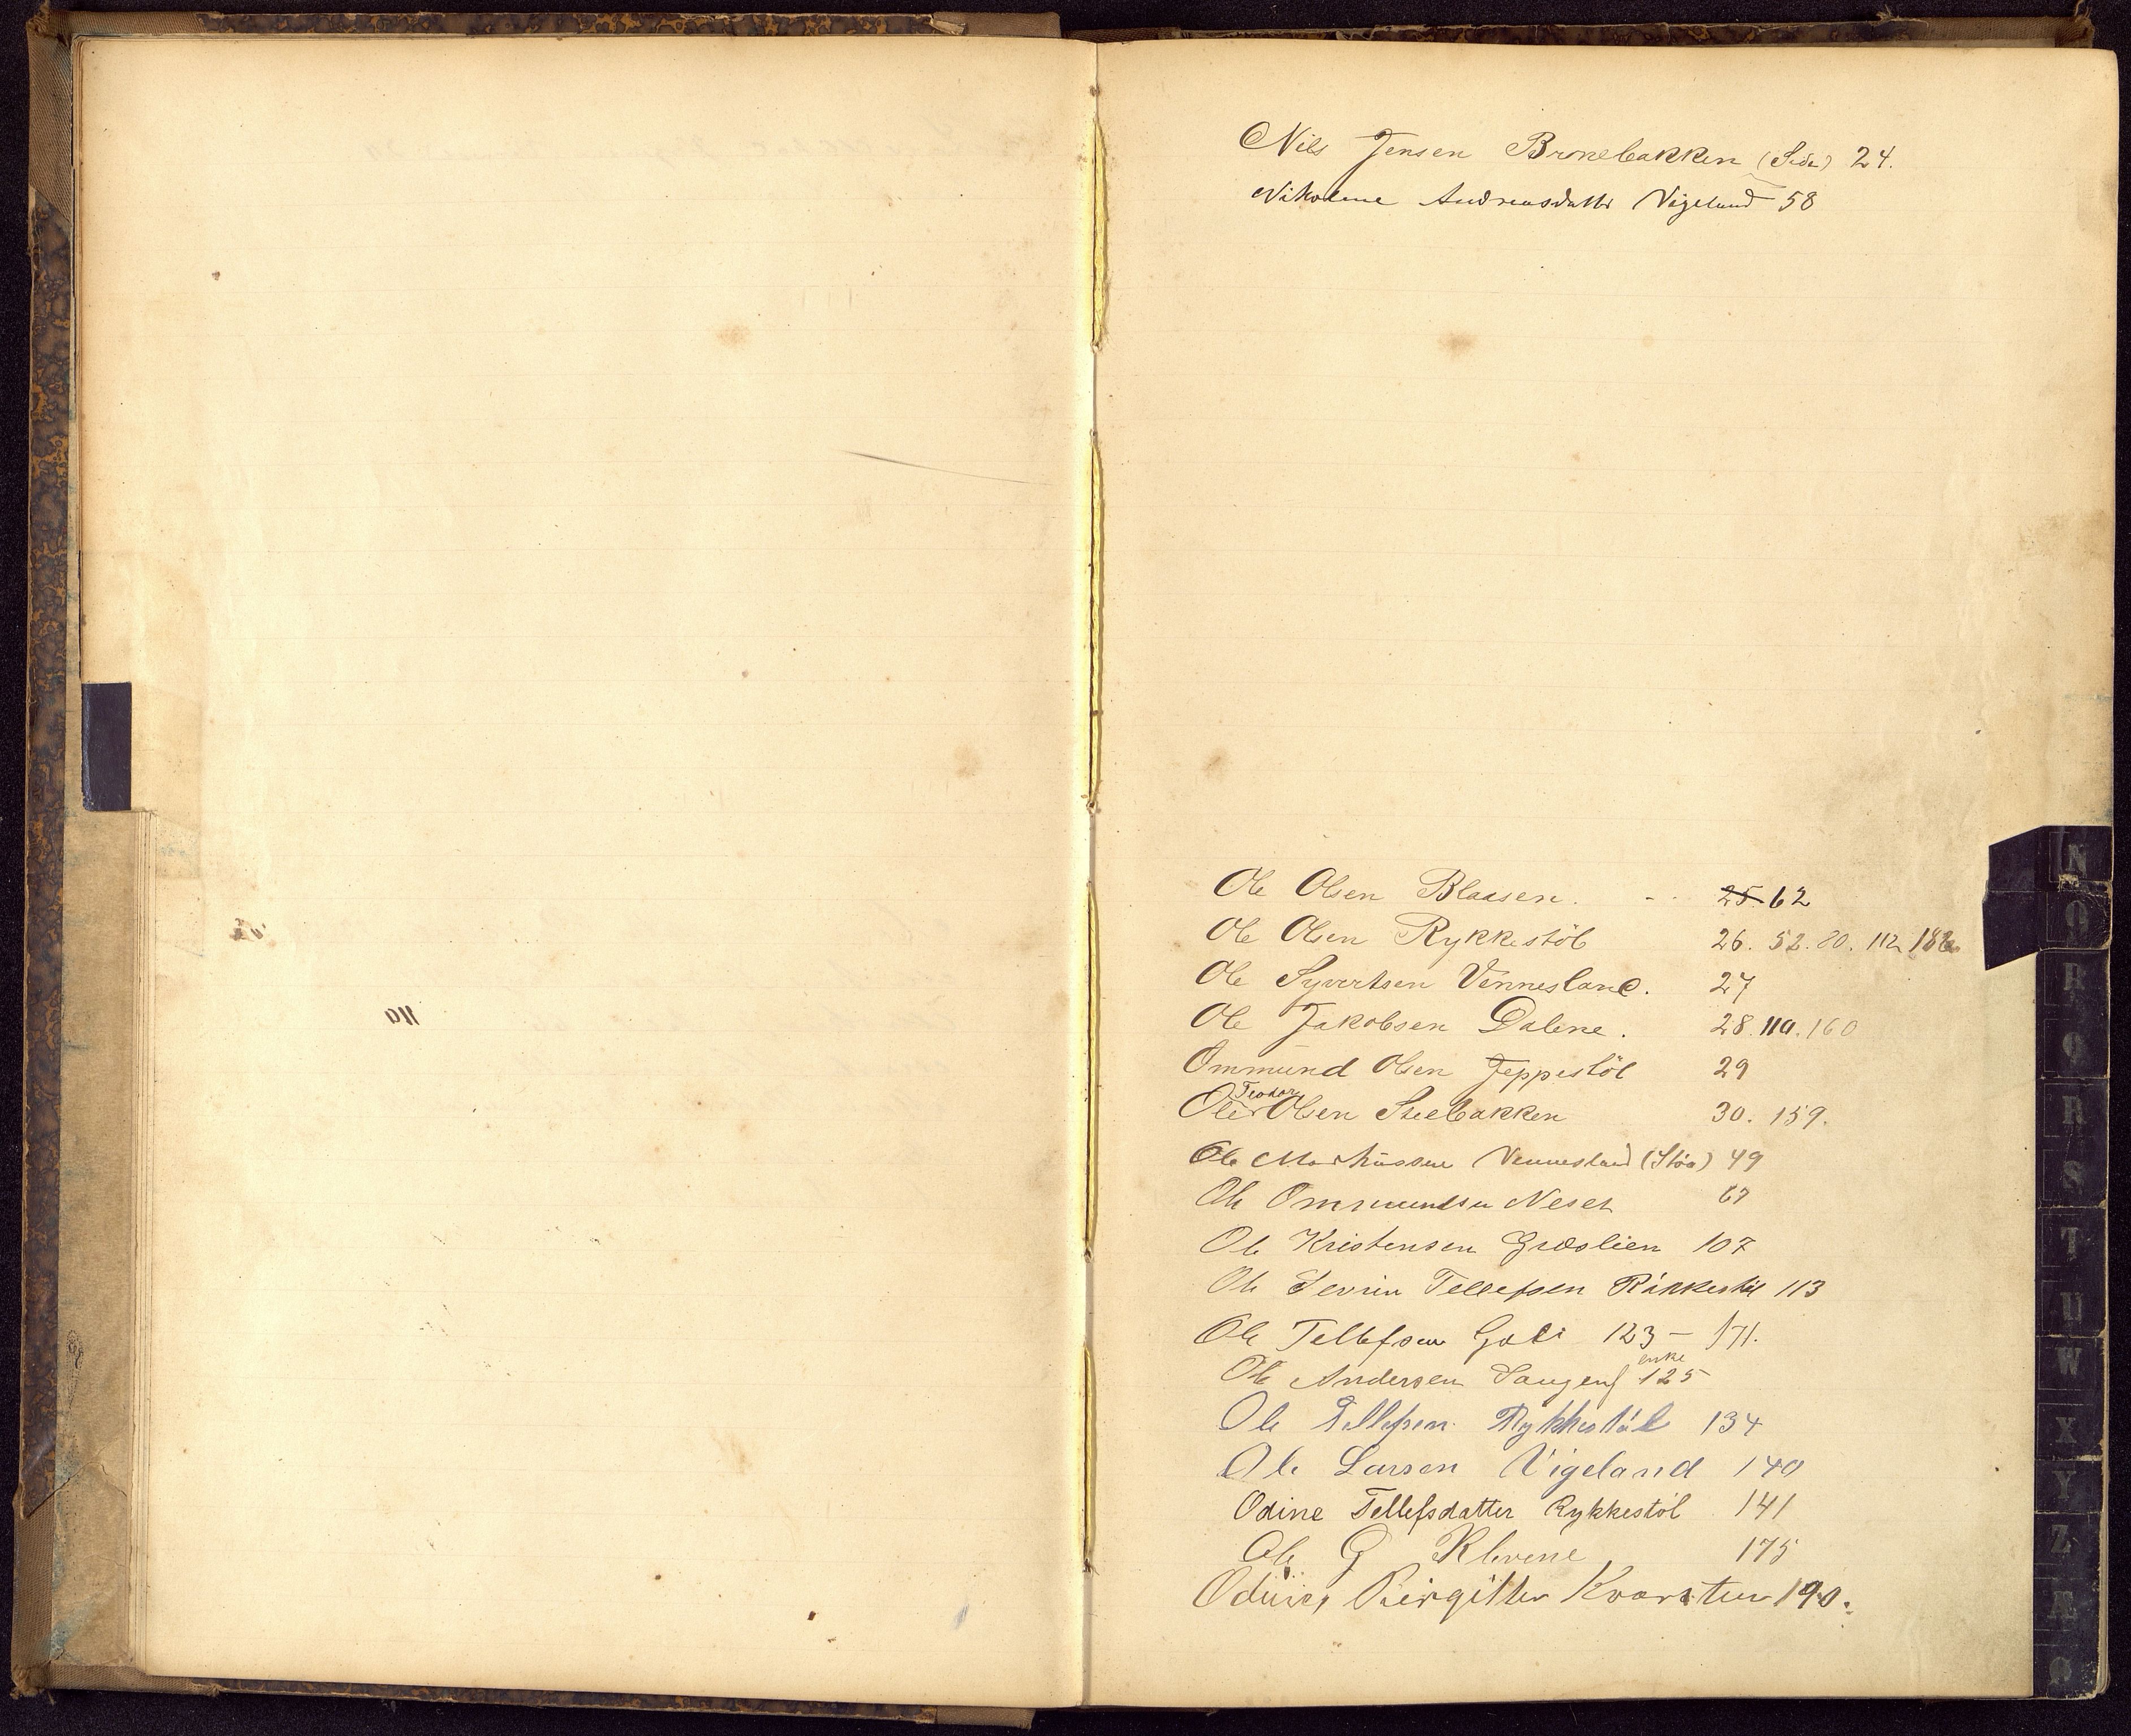 Nils Jensen Bronebakken (Side) 24.
Nikoline Andreasdatter Vigeland 58
Ole Olsen Blaasen. - - 25 62
Ole Olsen Rykkestöl 26. 52. 80. 112 186
Ole Syvertsen Vennesland. 27
Ole Jakobsen Dalene. 28. 110. 160
Ommund Olsen Jeppestöl 29
Teodor
Ole Olsen Steebakken 30. 159.
Ole Markussen Vennesland (Stöa) 49
Ole Ommundsen Neset 67
Ole Kristensen Græslien 107
Ole Severin Tellefsen Rikkestöl 113
Ole Tellefsen Gobi 123 - 171.
enke
Ole Andersen Haugen 125
Ole Tellefsen Rykkestöl 134
Ole Larsen Vigeland 140
Odine Tellefsdatter Rykkestöl 141
Ole G Klevene 175
Odine, Birgitte Kvarsten 190.
110
N
O
R
Q
R
S
T
U
W
X
Y
Z
Æ
Ø